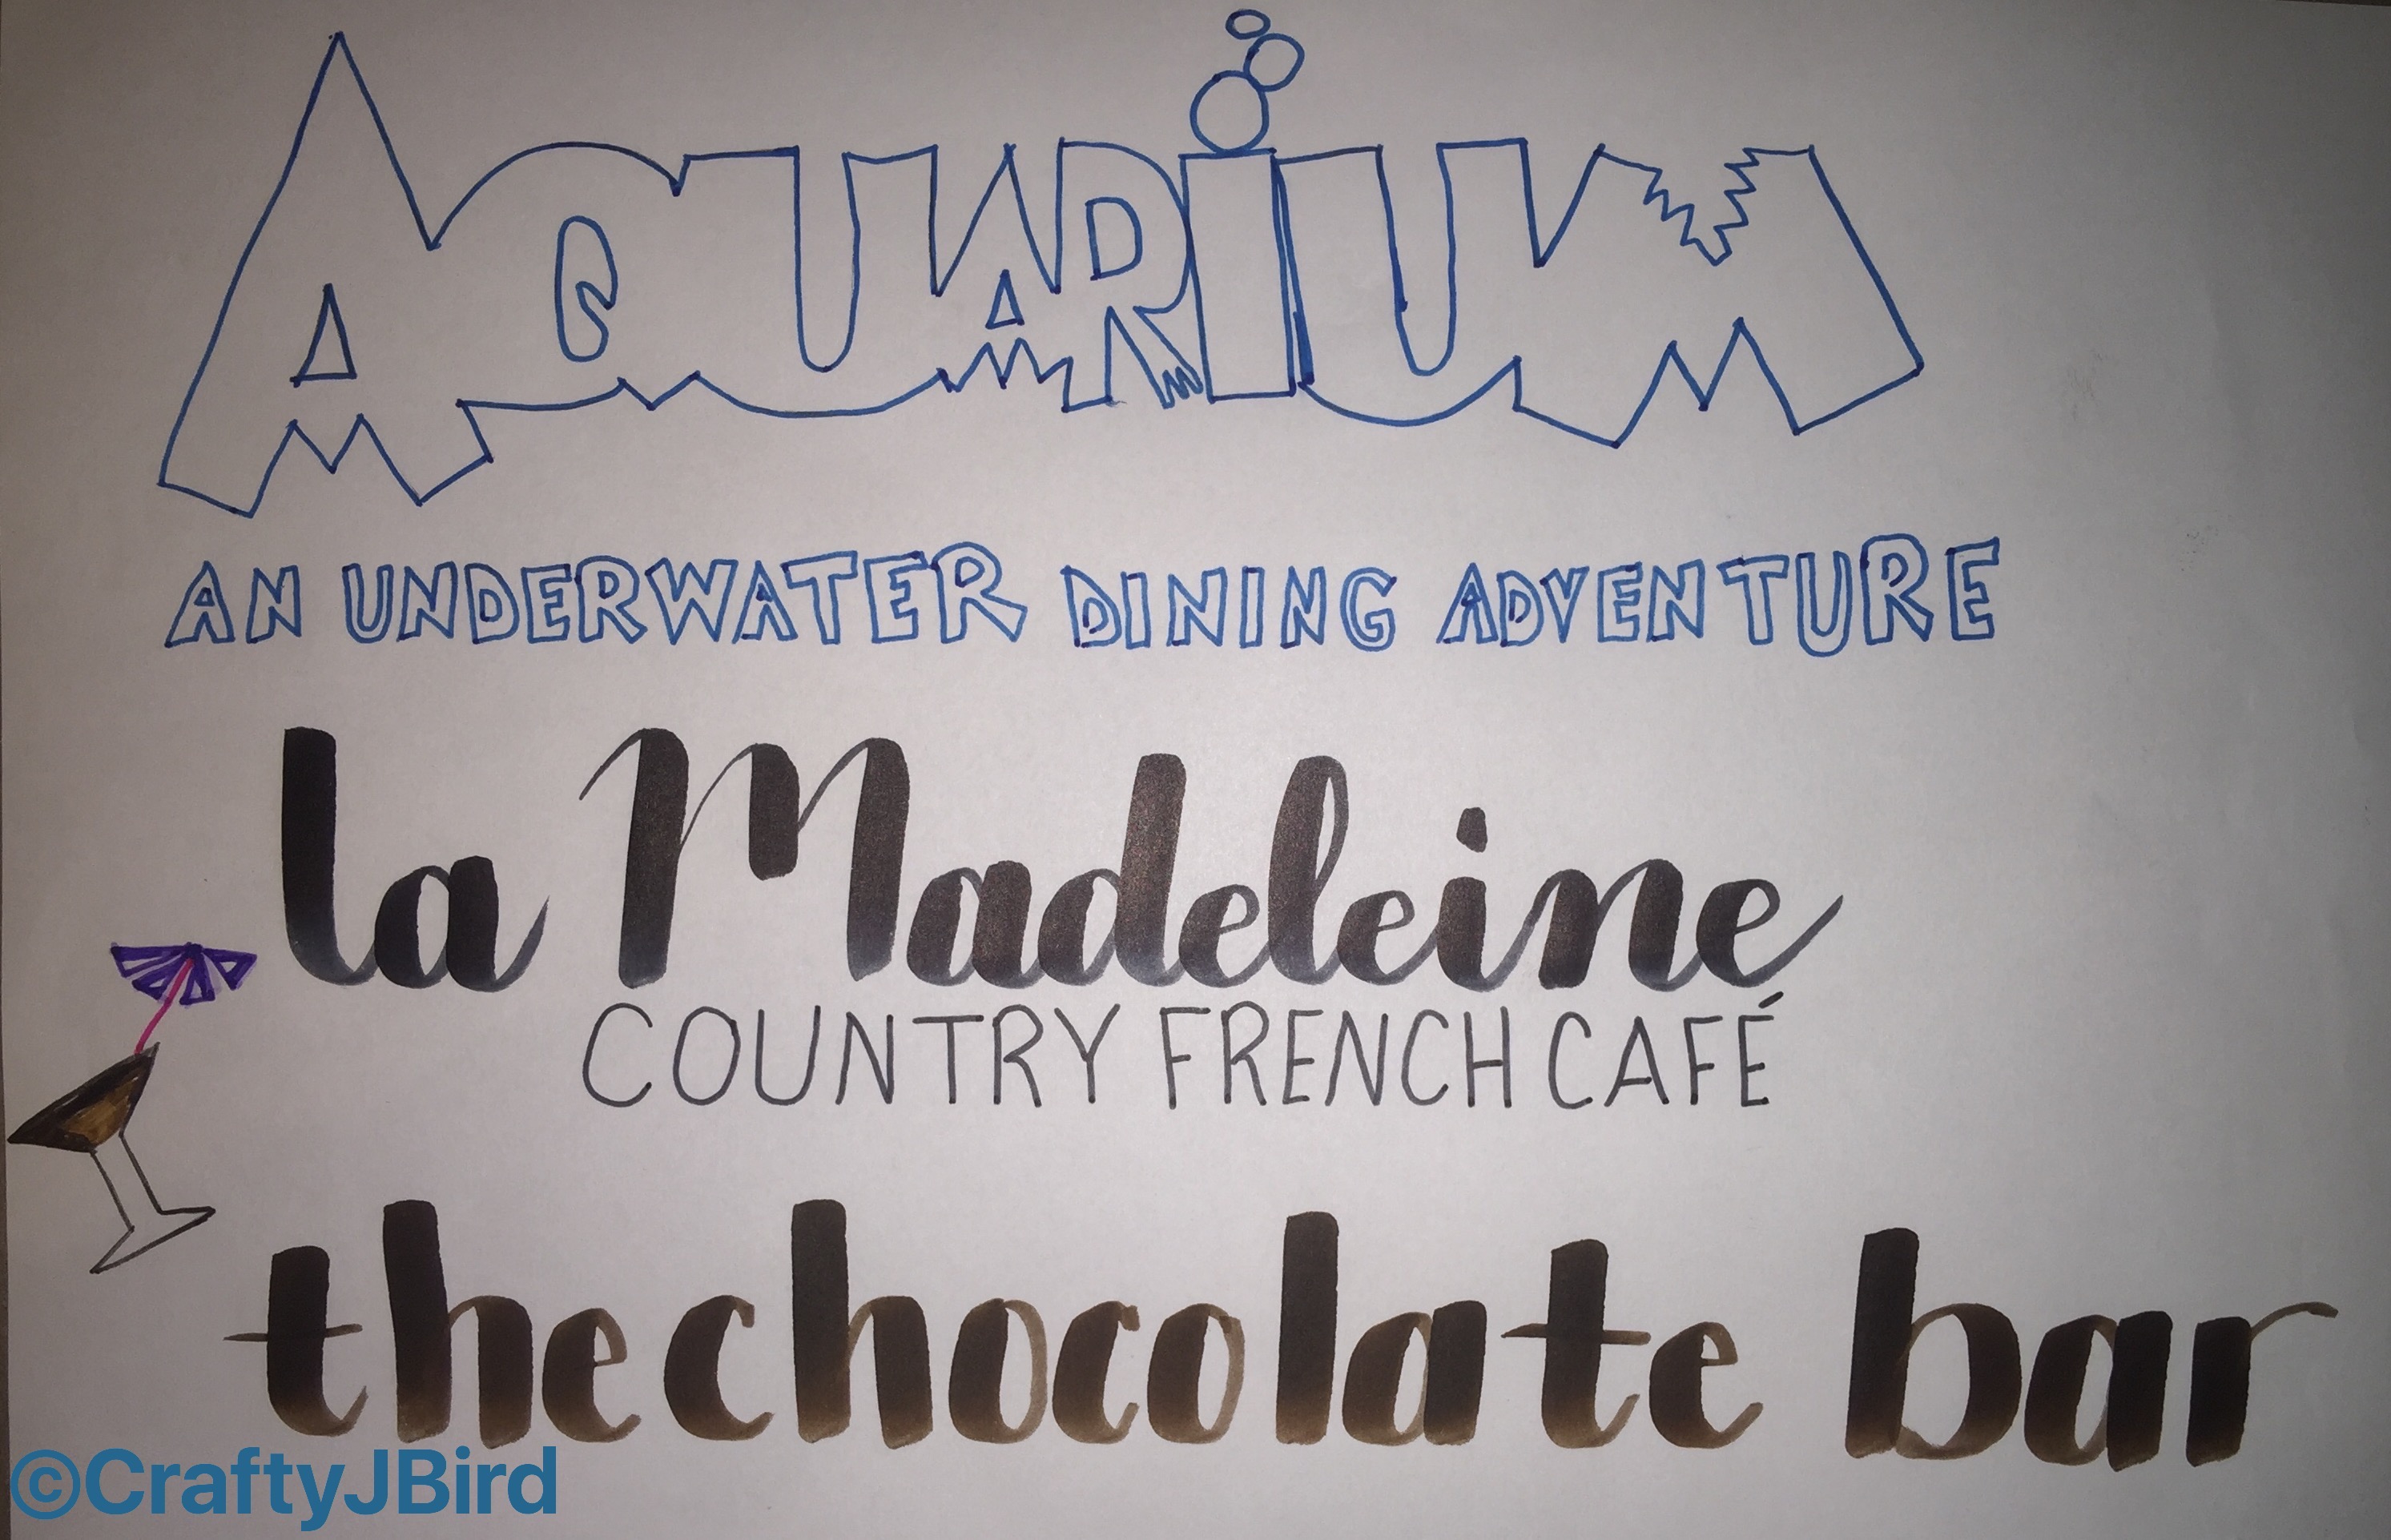 AQUARiUM
AN UNDERWATER DINING ADVENTURE
la Madeleine
COUNTRY FRENCH CAFÉ
the chocolate bar
©CraftyJBird